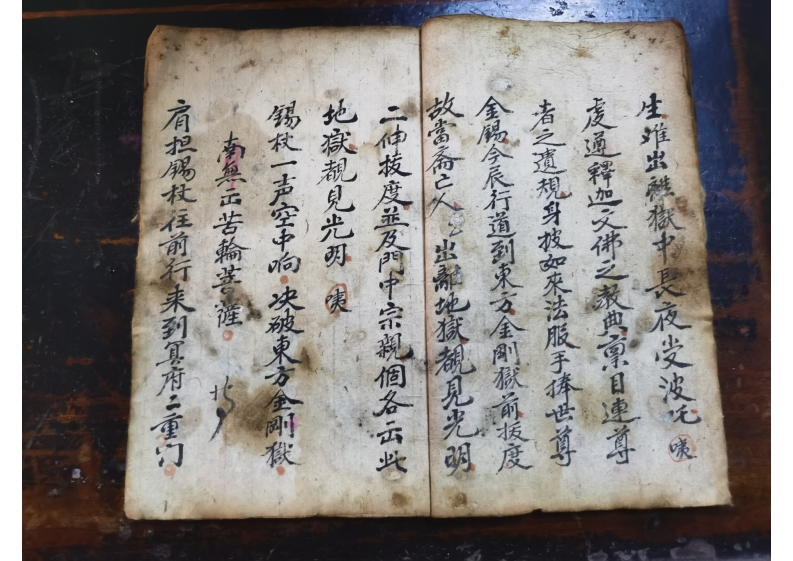 生难出離獄中長夜受波吒 咦
虔遵釋迦文佛之教典禀目連尊
者之遺規身披如來法服手捧世尊
金錫今辰行道到東方金剛獄前拔度
故當斋亡人〻出離地獄覩見光明
二伸拔度並及門中宗親個各出此
地獄覩見光明 咦
錫杖一声空中响决破東方金剛獄
南無出苦輪菩薩
肩担錫杖往前行来到冥府二重门